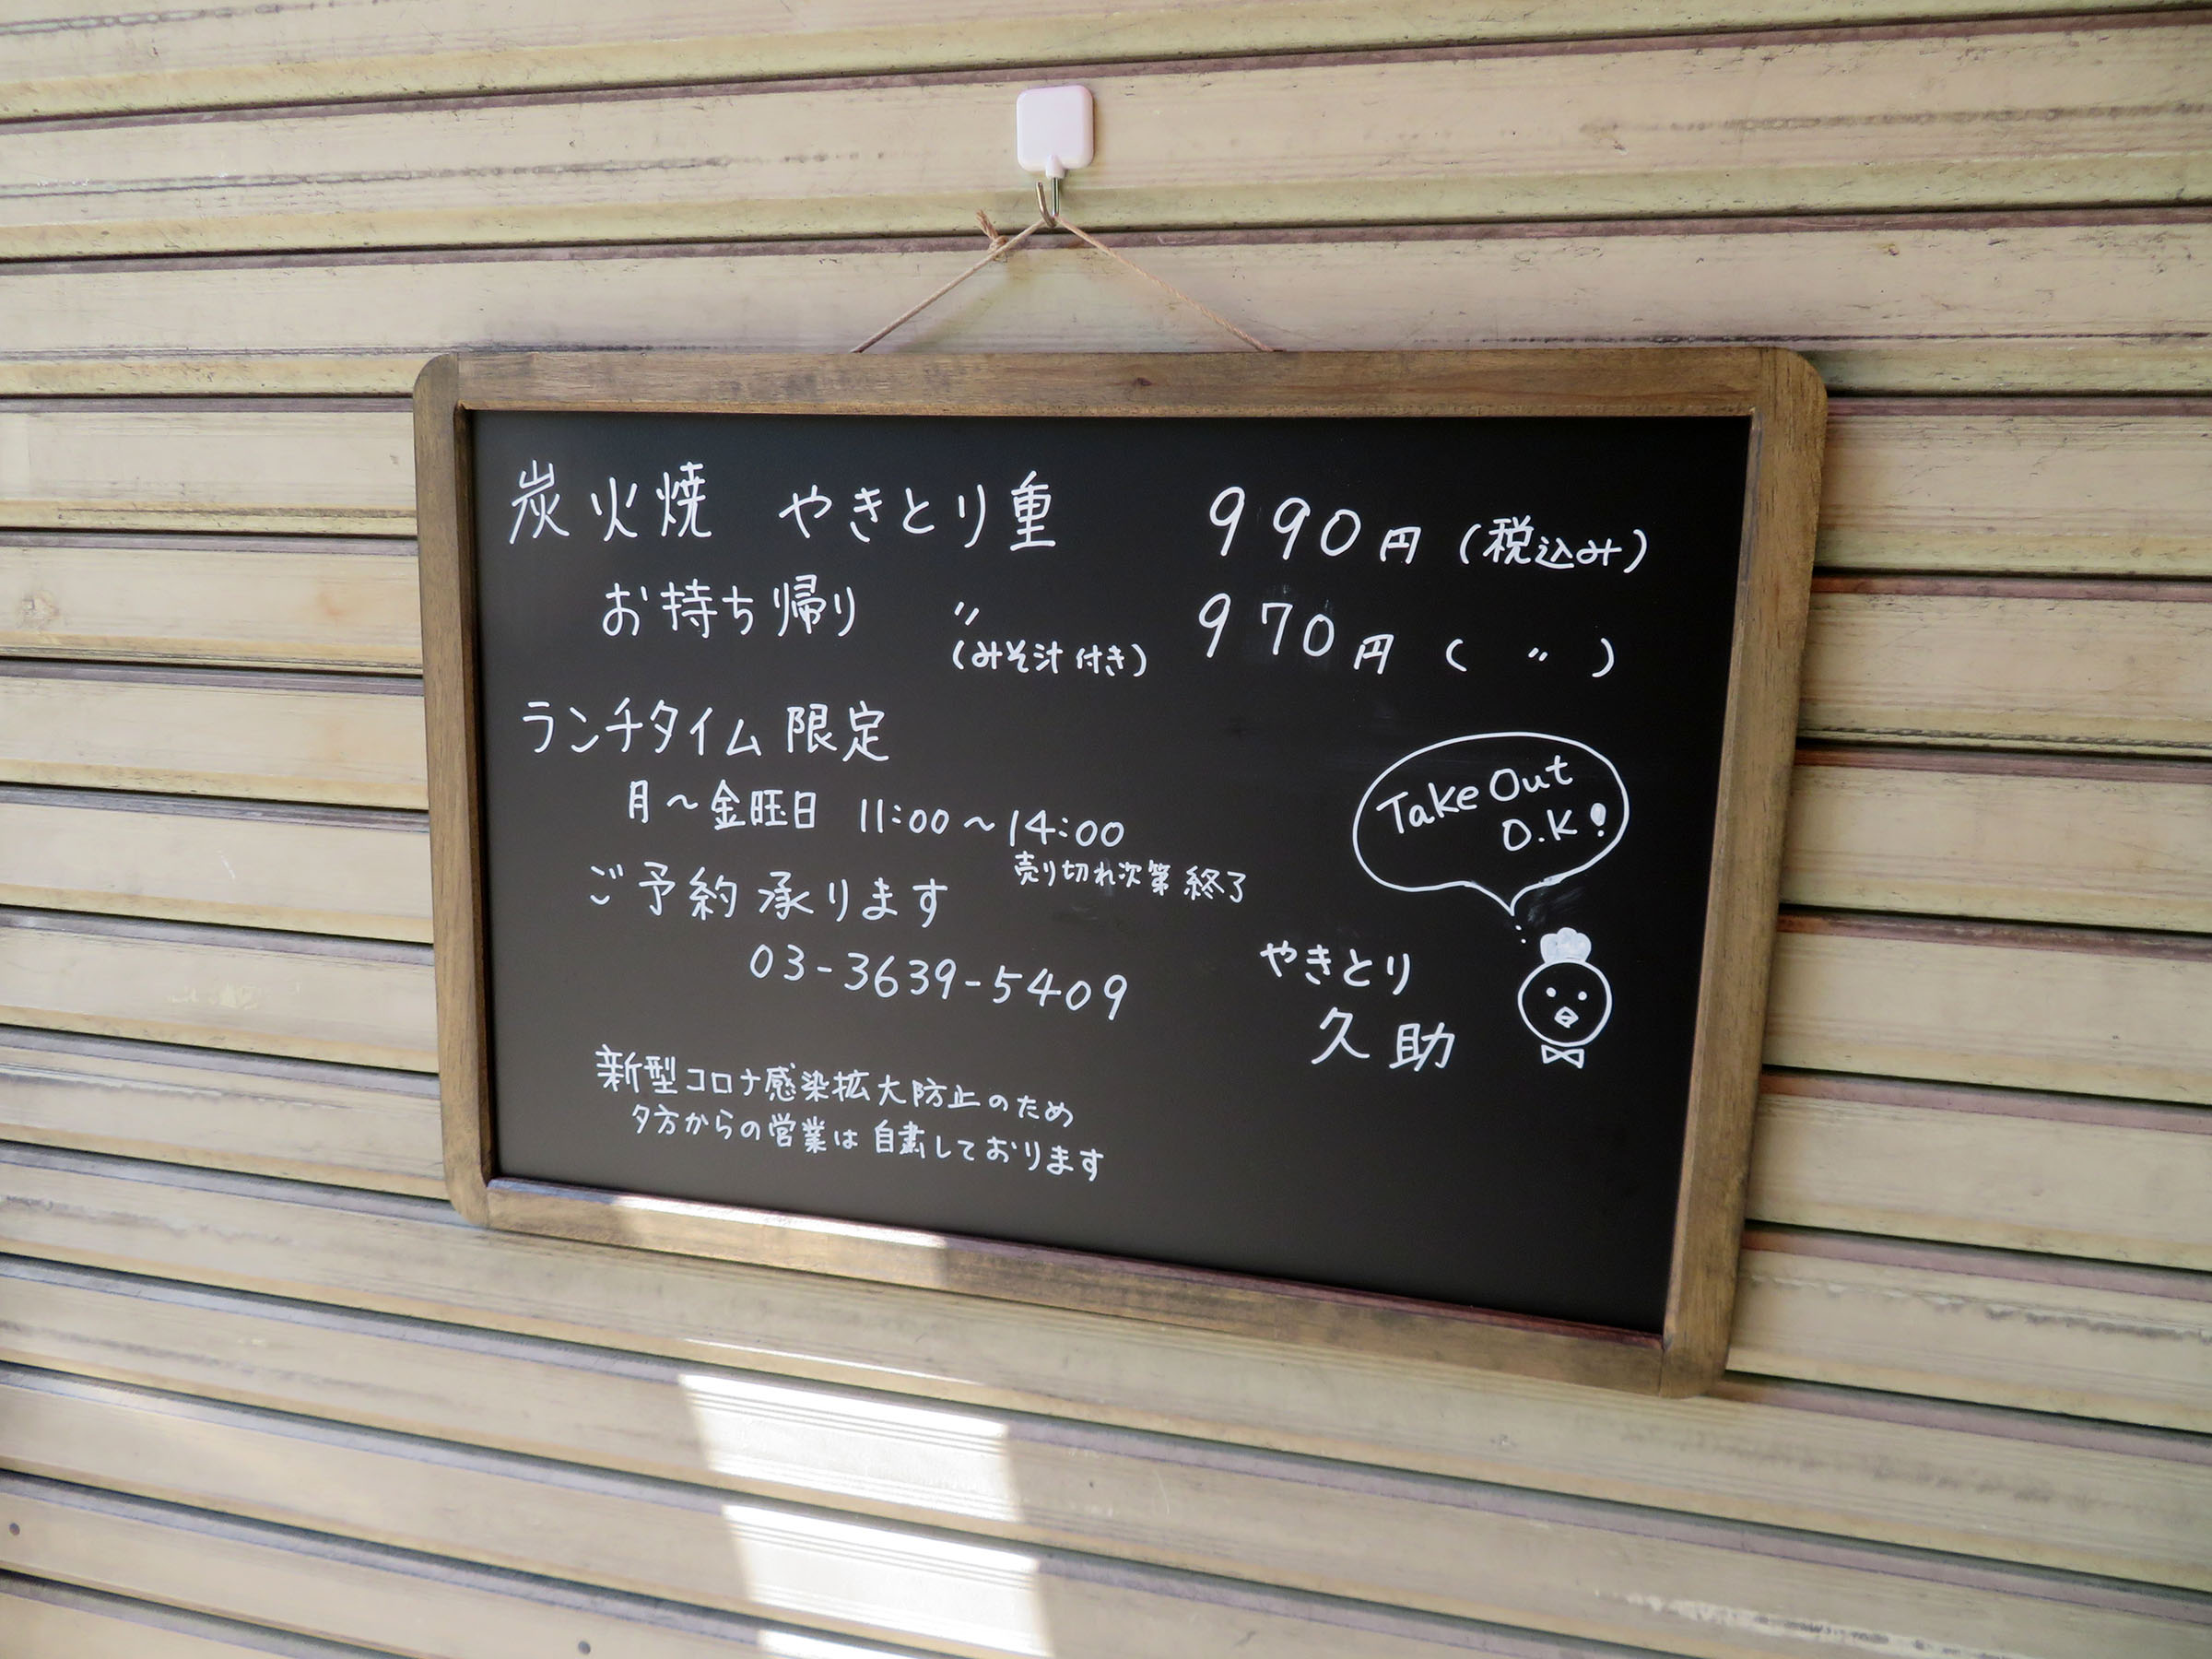 炭火焼 やきとり重 990円 (税込み)
お持ち帰り 〃 970円 ( 〃 )
(みそ汁付き)
ランチタイム限定
月～金旺日 11:00～14:00
売り切れ次第終了
ご予約承ります
03-3639-5409
Take Out
O.K!
やきとり
久助
新型コロナ感染拡大防止のため
夕方からの営業は自粛しております